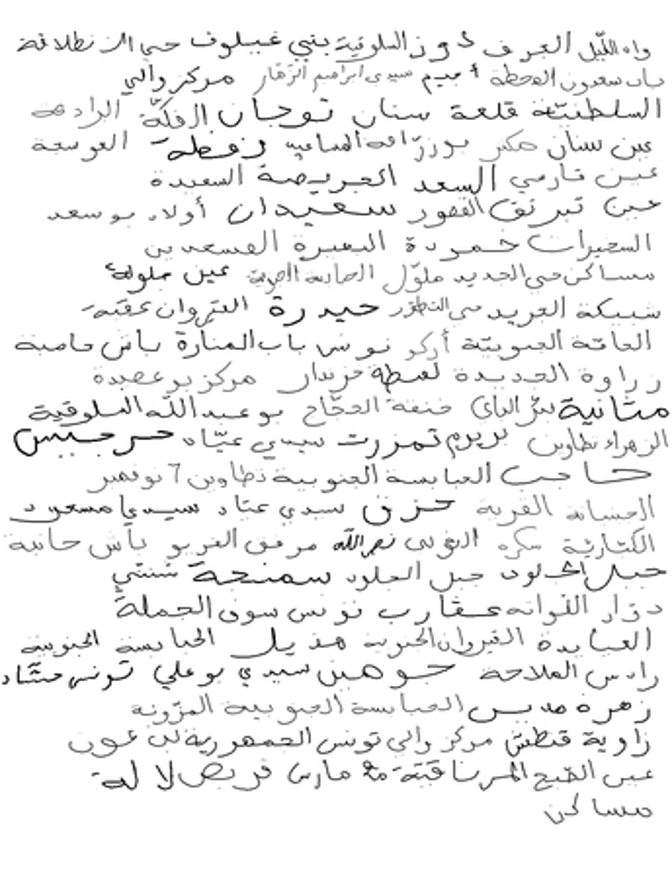 واد الليل العرف دوز السلوقية بني غيلوف حي الانطلاقة
باب سعدون المحطة أميم سيدي ابراهيم الزهار مركز والي
السلطنية قلعة سنان توجان الفكة الرادهة
عين سنان مكنر بوزرافة الساعية نفطة العوسجة
عين فارمي السعد العريضة السعيدة
عين تبرنق القصور سعيدان أولاد بوسعد
السعيرات حمودة البعيرة المسعدين
مساكن حي الحديد ملول الصابة الحرية عين ملولة
شبيكة الجريد حي التطور حيدرة القيروان عقبة
الحامة الجنوبية أركو تونس باب المنارة باش حامبة
زراوة الجديدة لمطة خزندار مركز بوعصيدة
متانية بئر الباي خنقة الحجاج بوعبد الله السلوقية
الزهراء تطاوين بريرم تمزرت سيدي عياد جرجيس
حاجب العبابسة الجنوبية تطاوين 7 نوفمبر
الحسيانة القرية حزق سيدي عياد سيدي مسعود
الكثارية سكرة نصر الله مرفق العربو باش حانبة
جبل الجلود جبل الجلود سمنجة شنني
دوار اللواته عقارب تونس سوق الجملة
العبايدة القيروان الجنوبية هذيل الحبابسة الجنوبية
رادس الملاحة جوهين سيدي بوعلي تونس حشاد
زهرة مدين الحبابسة الجنوبية المزونة
زاوية قنطش مركز والي تونس الجمهورية بن عون
عين الطبح المرناقية مارس قربص لالة
مساكن